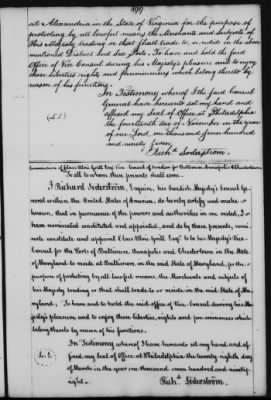 499
at Alexandria in the State of Virginia for the purpose of
protecting by all lawful means the Merchants and Subjects of
His Majesty trading or that shall trade to, or reside in the above
mentioned District And Sea Ports. To have and hold the said
Office of Vice Consul during his Majesty's pleasure and to enjoy
those liberties rights and which belong thereto by
reason of his functions.
In Testimony whereof I the said Consul
General have hereunto set my hand and
affixed my Seal of Office at Philadelphia
the fourteenth day of November in the year
of our Lord, one thousand seven hundred
and ninety seven
(L.S.)
Rich.d Soderstrom.
To all to whom these presents shall come.
I Richard Soderström, Esquire, his Swedish Majesty's Consul Ge-
neral within the United States of America, do hereby certify and make
known, that in pursuance of the powers and authorities in me vested, I
have nominated constituted and appointed, and do by these presents, nomi-
nate constitute and appoint Esq.r to be his Majesty's Vice-
Consul for the Ports of Baltimore, Annapolis and in the State
of Maryland to reside at Baltimore in the said State of Maryland, for the
purpose of protecting by all lawful means, the Merchants and subjects of
his Majesty trading or that shall trade to or reside in the said State of Ma-
ryland; To have and to hold the said office of Vice Consul during his Ma-
jesty's pleasure, and to enjoy those liberties, rights and which
belong thereto by reason of his functions.
In Testimony whereof I have hereunto set my hand and af-
fixed my Seal of Office at Philadelphia the twenty eighth day
of March in the year one thousand seven hundred and ninety-
eight.
L.S.
Rich.d Söderström.